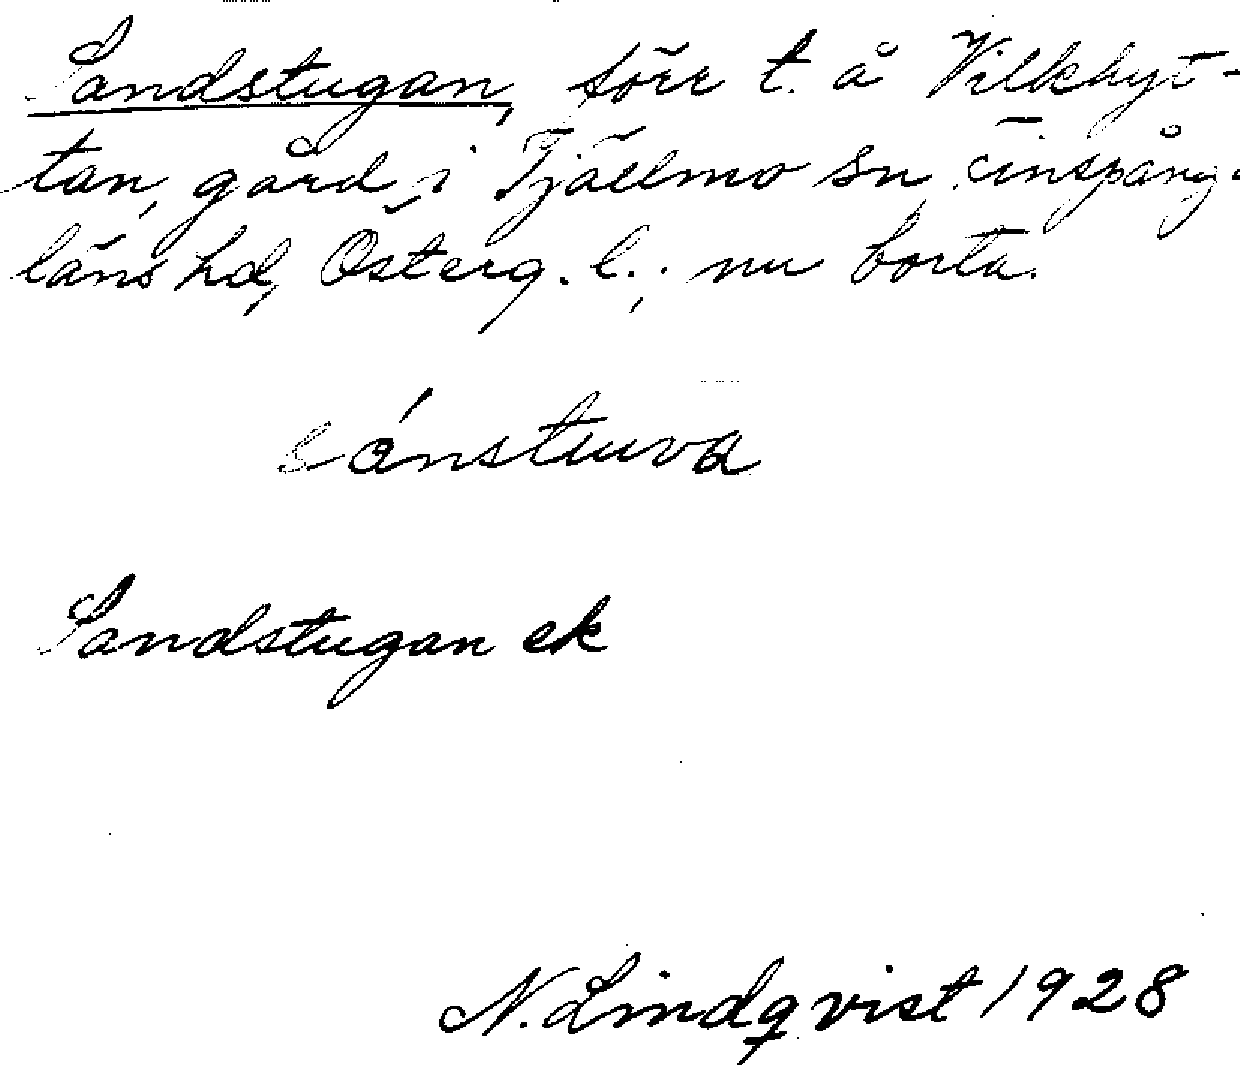 Sandstugan, förr t. å Vilkhyt-
tan, gård i Tjällmo sn, Finspång-
läns hd, Österg. l.; nu borta.
sánstuva
Sandstugan ek
N. Lindqvist 1928